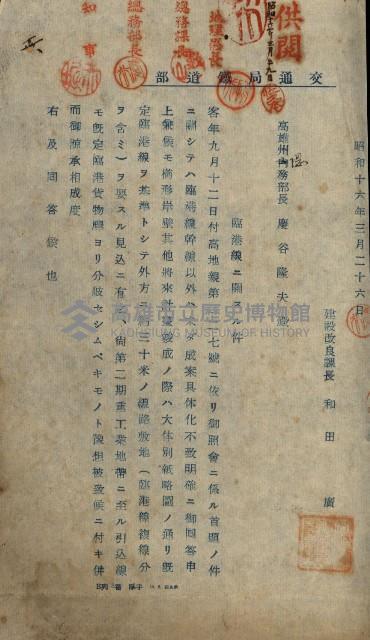 供閲
昭和十六年三月二九日
地理係長
總務課長
總務部長
知事
交通局鐵道部
昭和十六年三月二十六日
建設改良課長 和田廣
高雄州內務部長 慶谷隆夫殿
臨港線ニ關スル件
客年九月十二日付高地親第 七號ニ依リ御照會ニ係ル首題ノ件
ニ關シテハ臨港線幹線以外 タ成案具体化不致明確ニ御回答申
上兼候モ楯形岸壁其他將來計 成ノ際ハ大体別紙略圖ノ通リ既
定臨港線ヲ基準トシテ外方 約三十米ノ線路敷地(臨港線複線分
ヲ含ミ)ヲ要スル見込ニ有 尙第二期重工業地帶ニ至ル引込線
モ既定臨港貨物驛ヨリ分岐セシムベキモノト豫想被致候ニ付キ併
而御諒承相成度
右及回答候也
高雄市立歷史博物館
KAOHSIUNG MUSEUM OF HISTORY